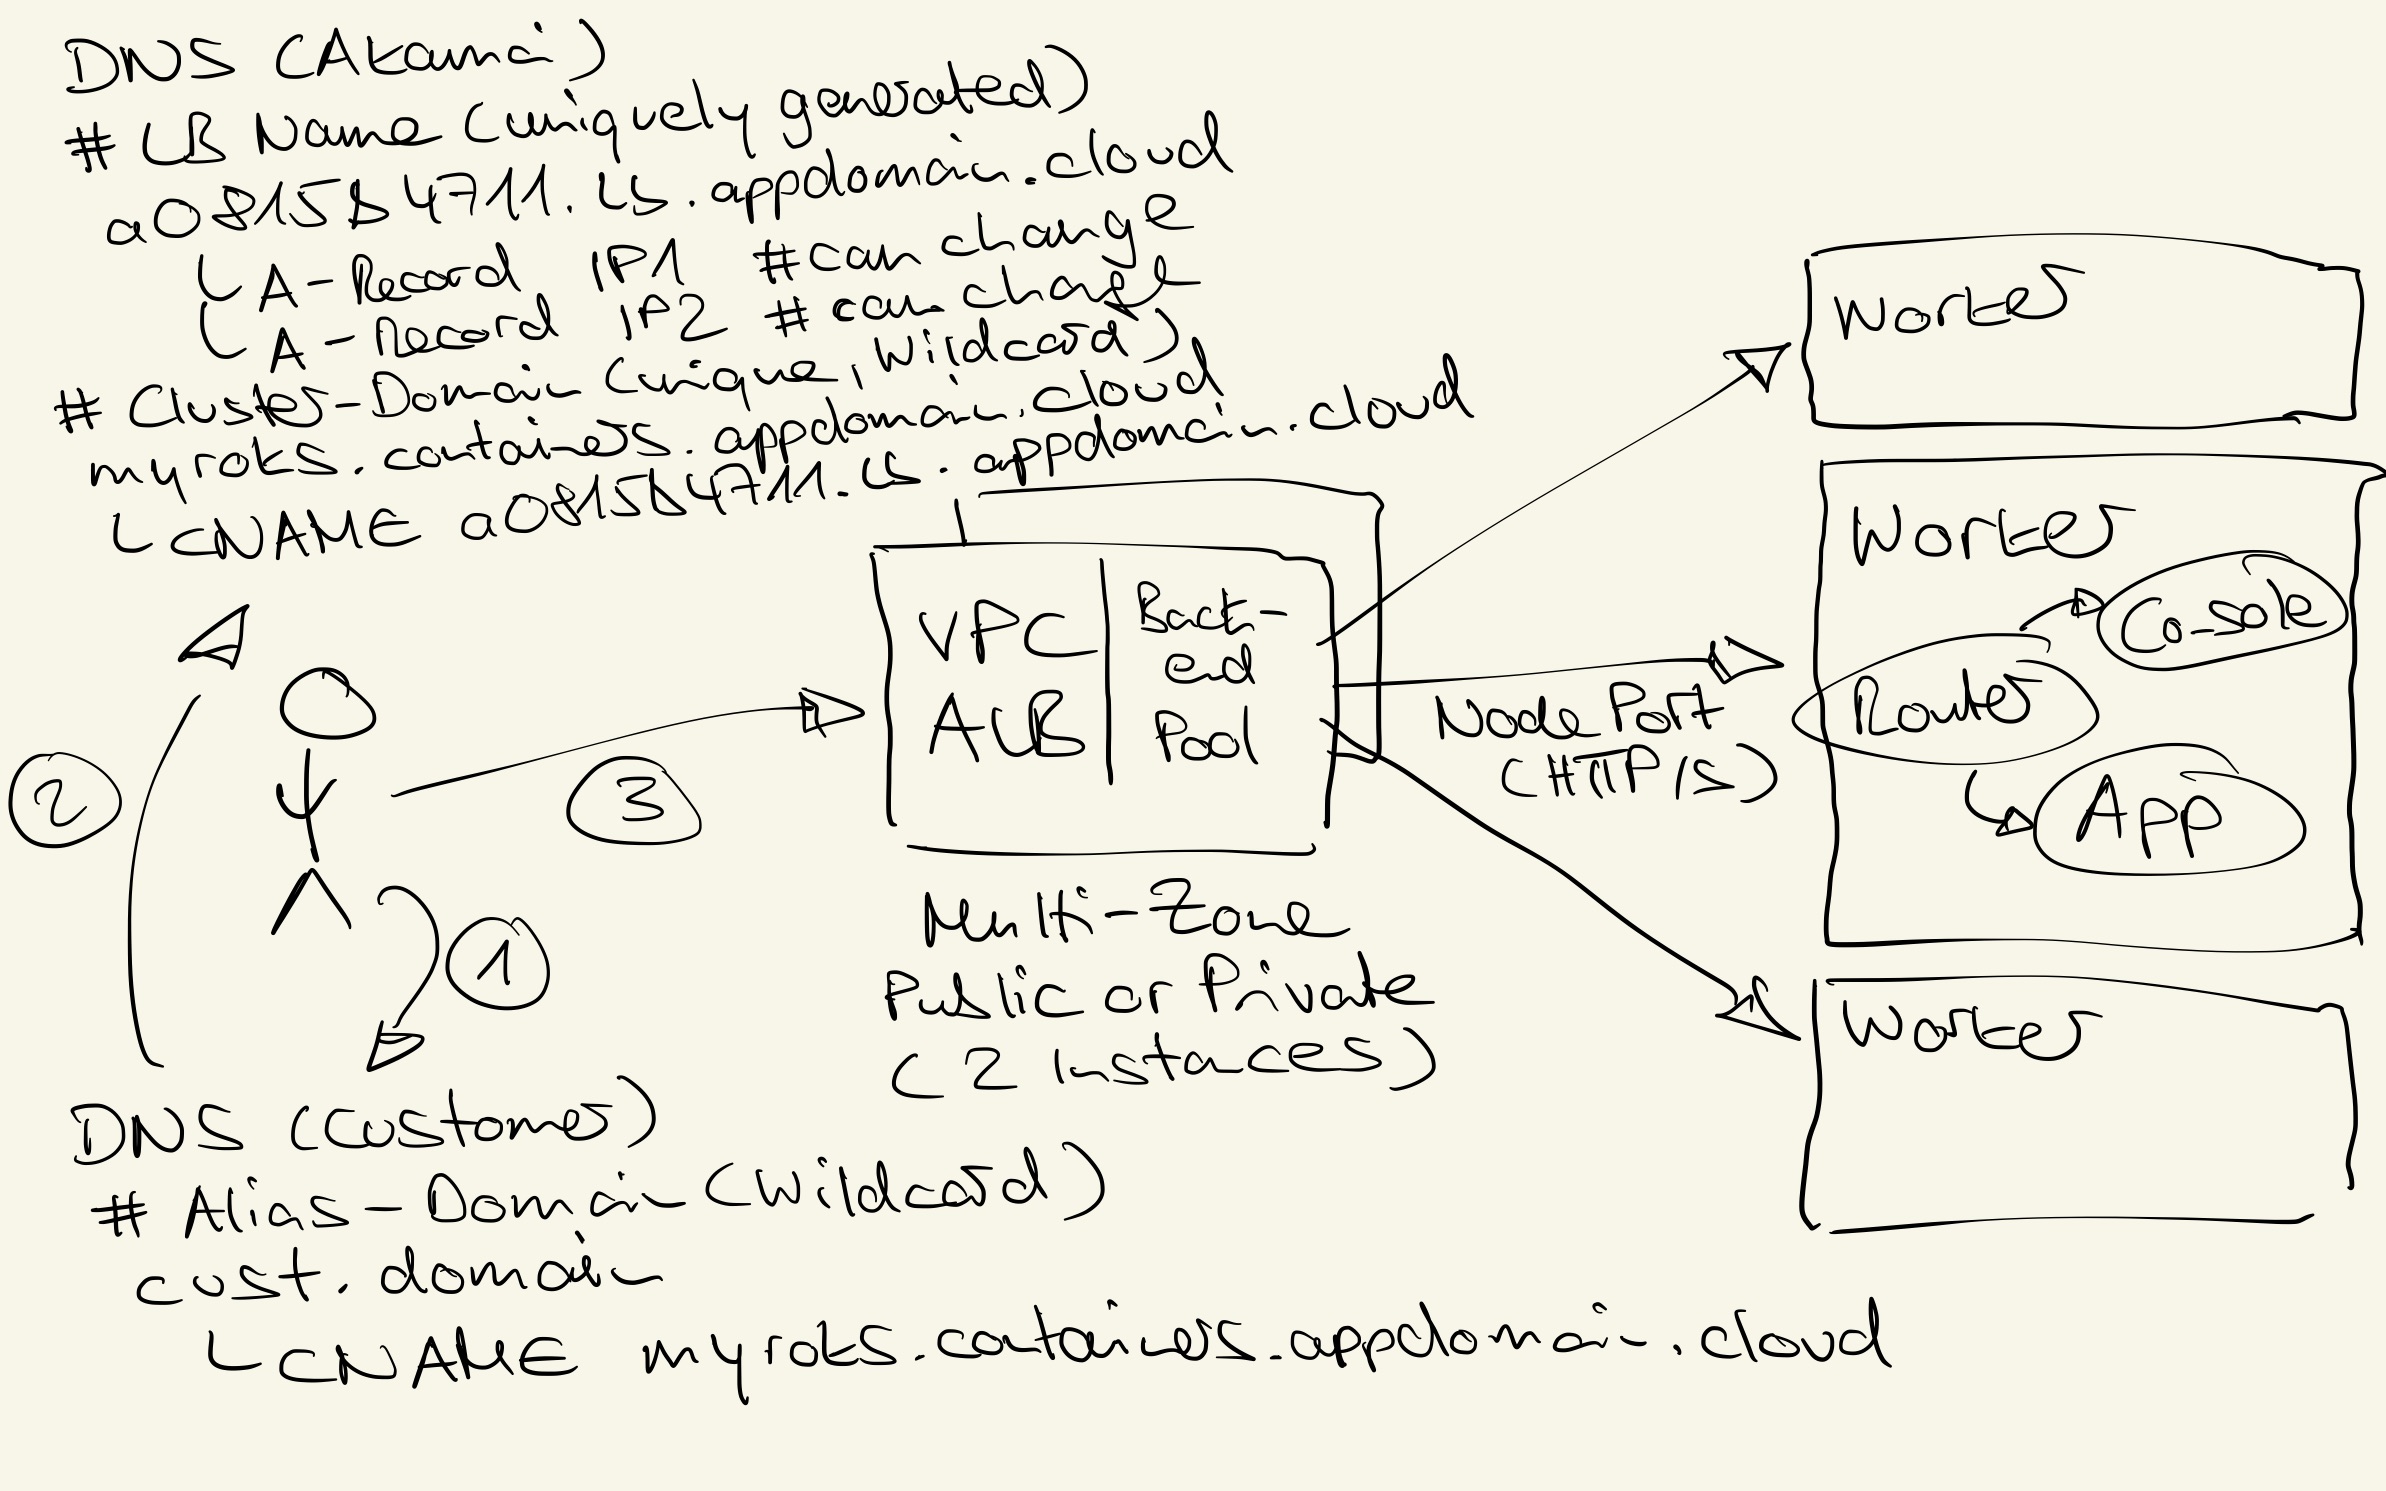 DNS (Akamai)
# LB Name (uniquely generated)
a0815b4711.lb.appdomain.cloud
A-Record IP1 #can change
A-Record IP2 #can change
# Cluster-Domain (unique, Wildcard)
myroks.containers.appdomain.cloud
CNAME a0815b4711.lb.appdomain.cloud
2
3
1
VPC
ALB
Back-
end
Pool
Multi-Zone
Public or Private
(2 Instances)
Node Port
(HTTP/S)
Worker
Worker
Console
Router
App
Worker
DNS (Customer)
# Alias-Domain (Wildcard)
cust.domain
CNAME myroks.containers.appdomain.cloud